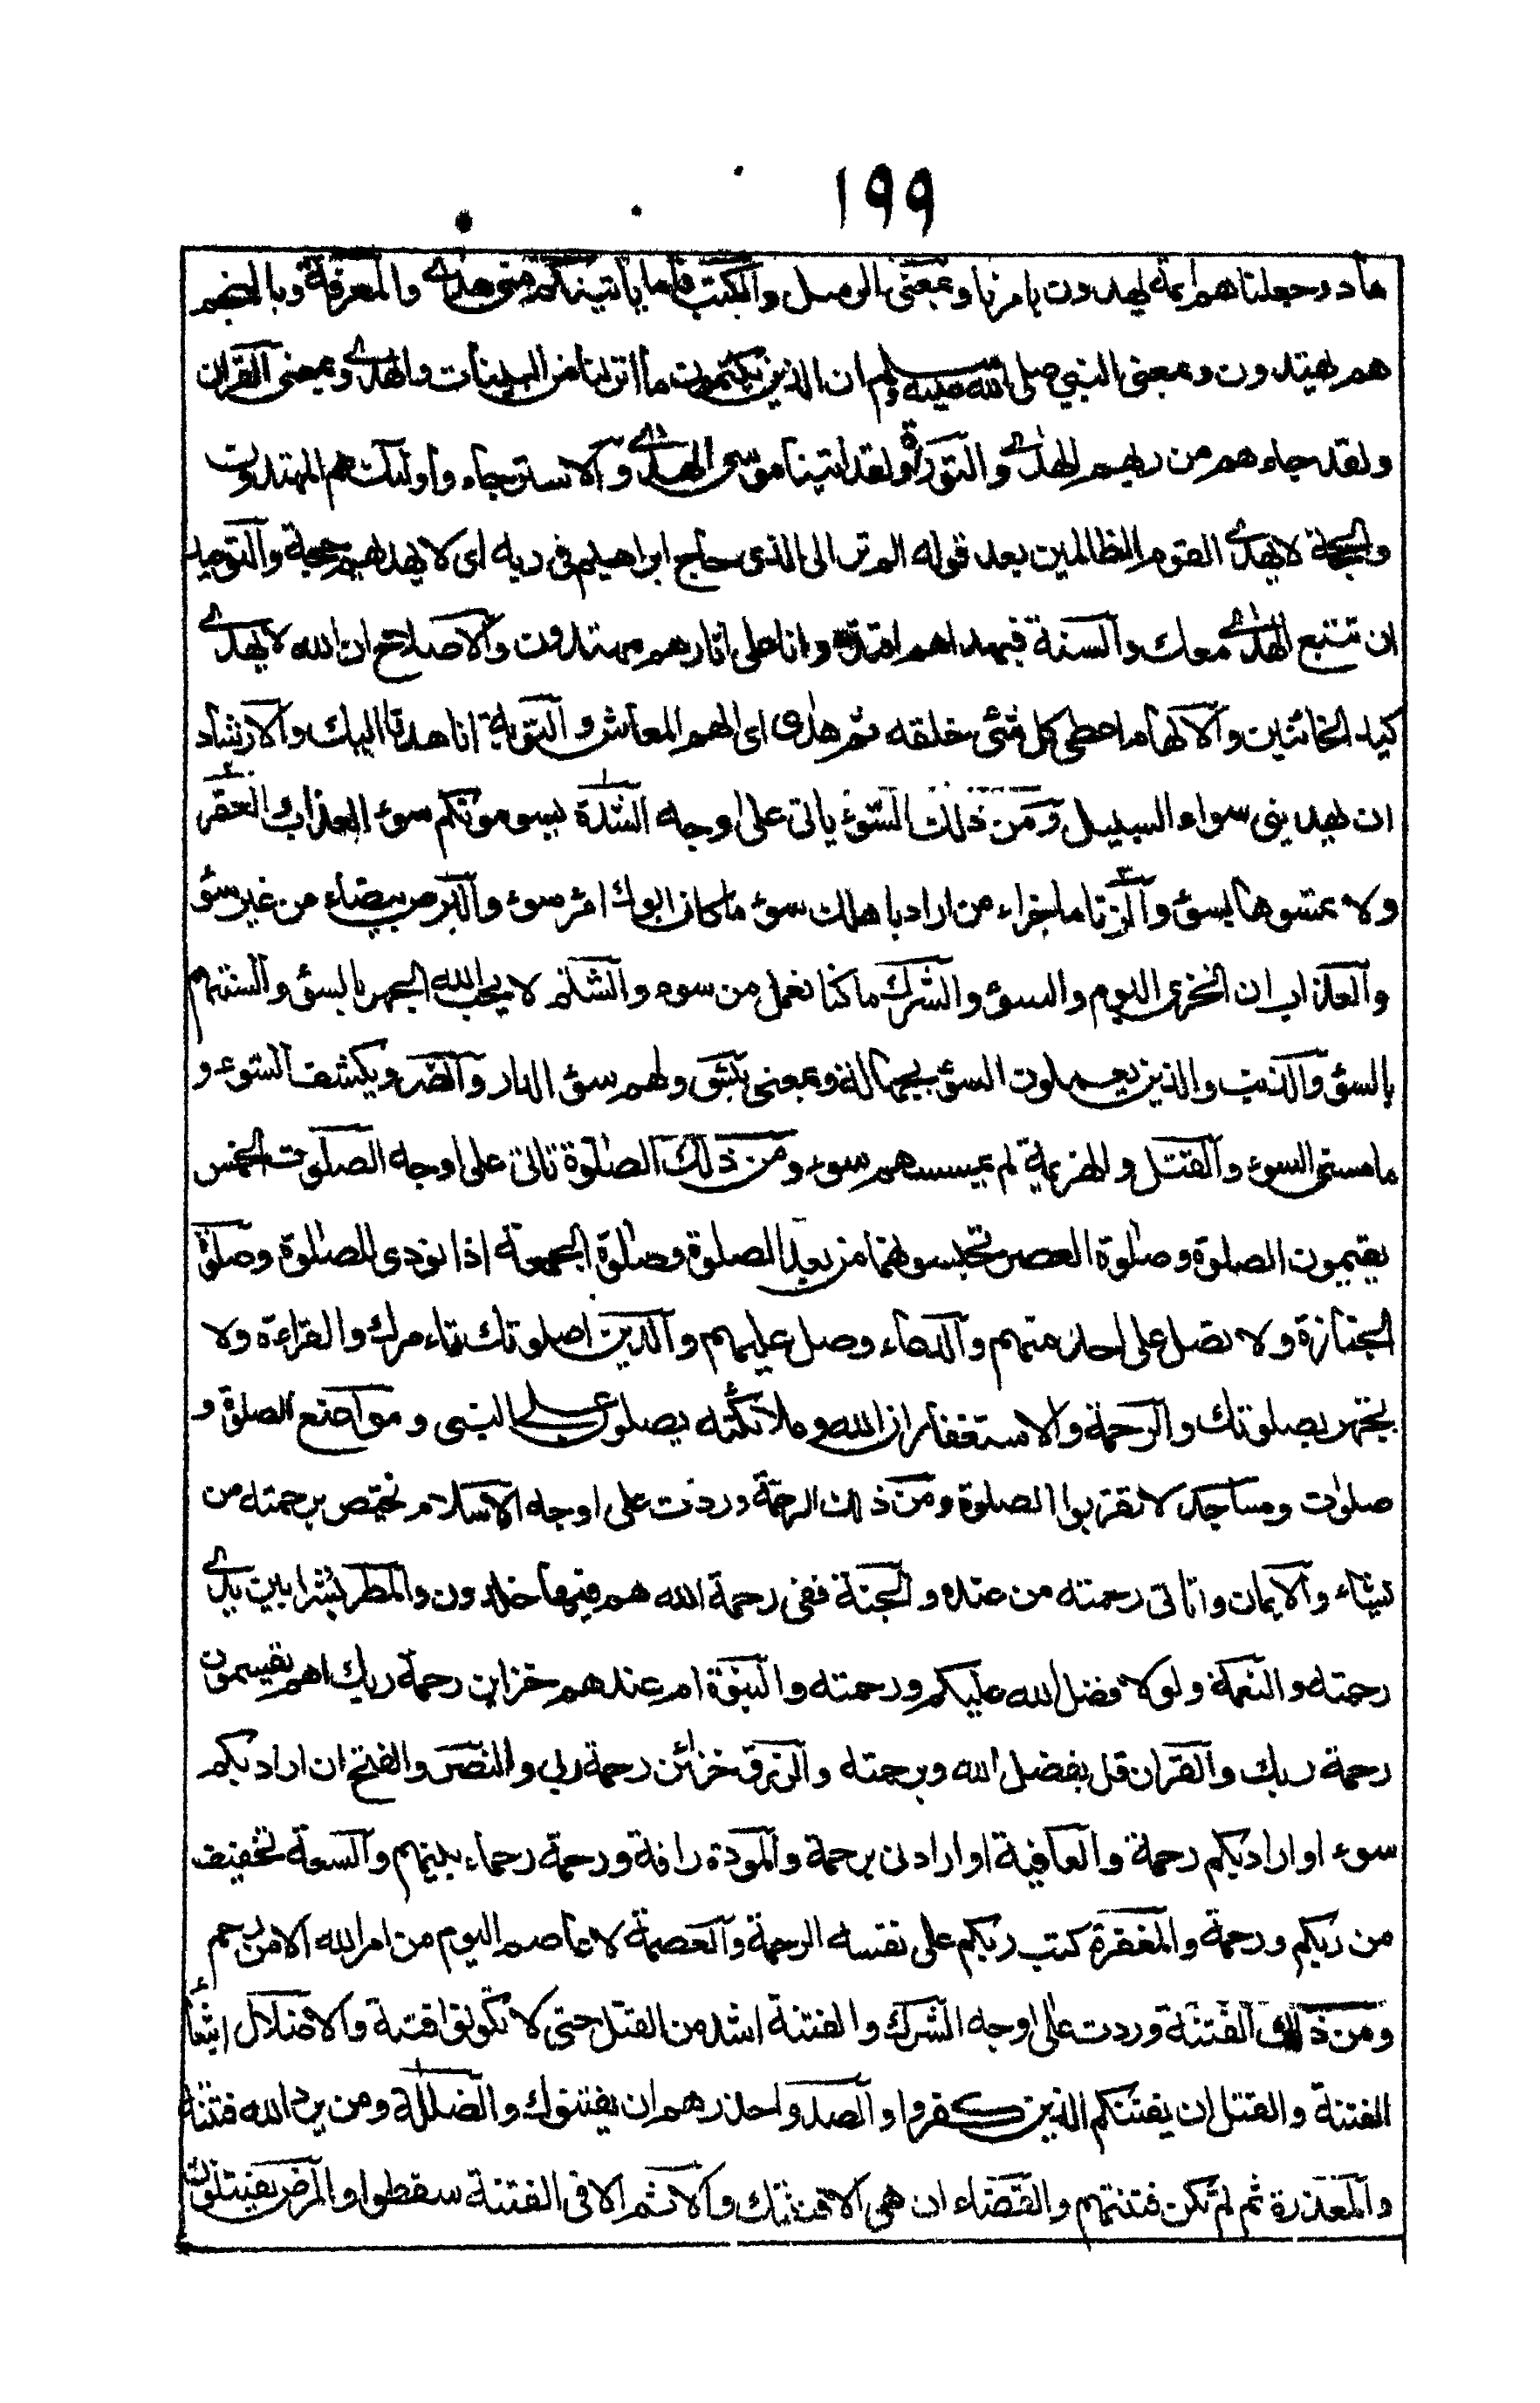 ١٩٩
هاد وجعلناهم ائمة يهدون بامرنا وبمعنى الرسل والكتب فاما ياتينكم منى هدى والمعرفة وبالنجم
هم يهتدون وبمعنى النبي صلى الله عليه وسلم ان الذين يكتمون ما انزلنا من البينات والهدى وبمعنى القران
ولقد جاءهم من ربهم الهدى والتوراة ولقد اتينا موسى الهدى والاسترجاء واولئك هم المهتدون
والحجة لا يهدى القوم الظالمين بعد قوله الم تر الى الذى حاج ابراهيم فى ربه اى لا يهديهم حجة والتوحيد
ان نتبع الهدى معك والسنة فبهداهم اقتده وانا على اثارهم مهتدون والاصلاح ان الله لا يهدى
كيد الخائنين والالهام اعطى كل شئ خلقه ثم هدى اى الهم المعاش والتوبة انا هدنا اليك والارشاد
ان يهدينى سواء السبيل ومن ذلك السوء ياتى على اوجه الشدة يسومونكم سوء العذاب والعقر
ولا تمسوها بسوء والزنا ما جزاء من اراد باهلك سوء ما كان ابوك امرء سوء والبرص بيضاء من غير سوء
والعذاب ان الخزى اليوم والسوء والشرك ما كنا نعمل من سوء والشتم لا يحب الله الجهر بالسوء والسنتهم
بالسوء والذنب والذين يعملون السوء بجهالة وبمعنى بئس ولهم سوء الدار والضر ويكشف السوء و
ما مسنى السوء والقتل والهزيمة لم يمسسهم سوء ومن ذلك الصلوة تاتى على اوجه الصلوت الخمس
يقيمون الصلوة وصلوة العصر تحبسونهما من بعد الصلوة وصلوة الجمعة اذا نودى للصلوة وصلوة
الجنازة ولا تصل على احد منهم والدعاء وصل عليهم والدين اصلوتك تامرك والقراءة ولا
تجهر بصلوتك والرحمة والاستغفار ان الله وملائكته يصلون على النبى ومواضع الصلوة و
صلوات ومساجد لا تقربوا الصلوة ومن ذلك الرحمة وردت على اوجه الاسلام يختص برحمته من
يشاء والايمان واتانى رحمته من عنده والجنة ففى رحمة الله هم فيها خلدون والمطر بشرا بين يدى
رحمته والنعمة ولولا فضل الله عليكم ورحمته والنبوة ام عندهم خزاين رحمة ربك اهم يقسمون
رحمة ربك والقران قل بفضل الله وبرحمته والرزق خزائن رحمة ربى والنصر والفتح ان اراد بكم
سوء او اراد بكم رحمة والعافية او ارادنى برحمة والمودة رافة ورحمة رحماء بينهم والسعة تخفيف
من ربكم ورحمة والمغفرة كتب ربكم على نفسه الرحمة والعصمة لا عاصم اليوم من امر الله الا من رحم
ومن ذلك الفتنة وردت على اوجه الشرك والفتنة اشد من القتل حتى لا تكون فتنة والاضلال ابتغاء
الفتنة والقتل ان يفتنكم الذين كفروا والصد واحذرهم ان يفتنوك والضلالة ومن يرد الله فتنته
والمعذرة ثم لم تكن فتنتهم والقضاء ان هى الا فتنتك والاثم الا فى الفتنة سقطوا والمرض يفتنون